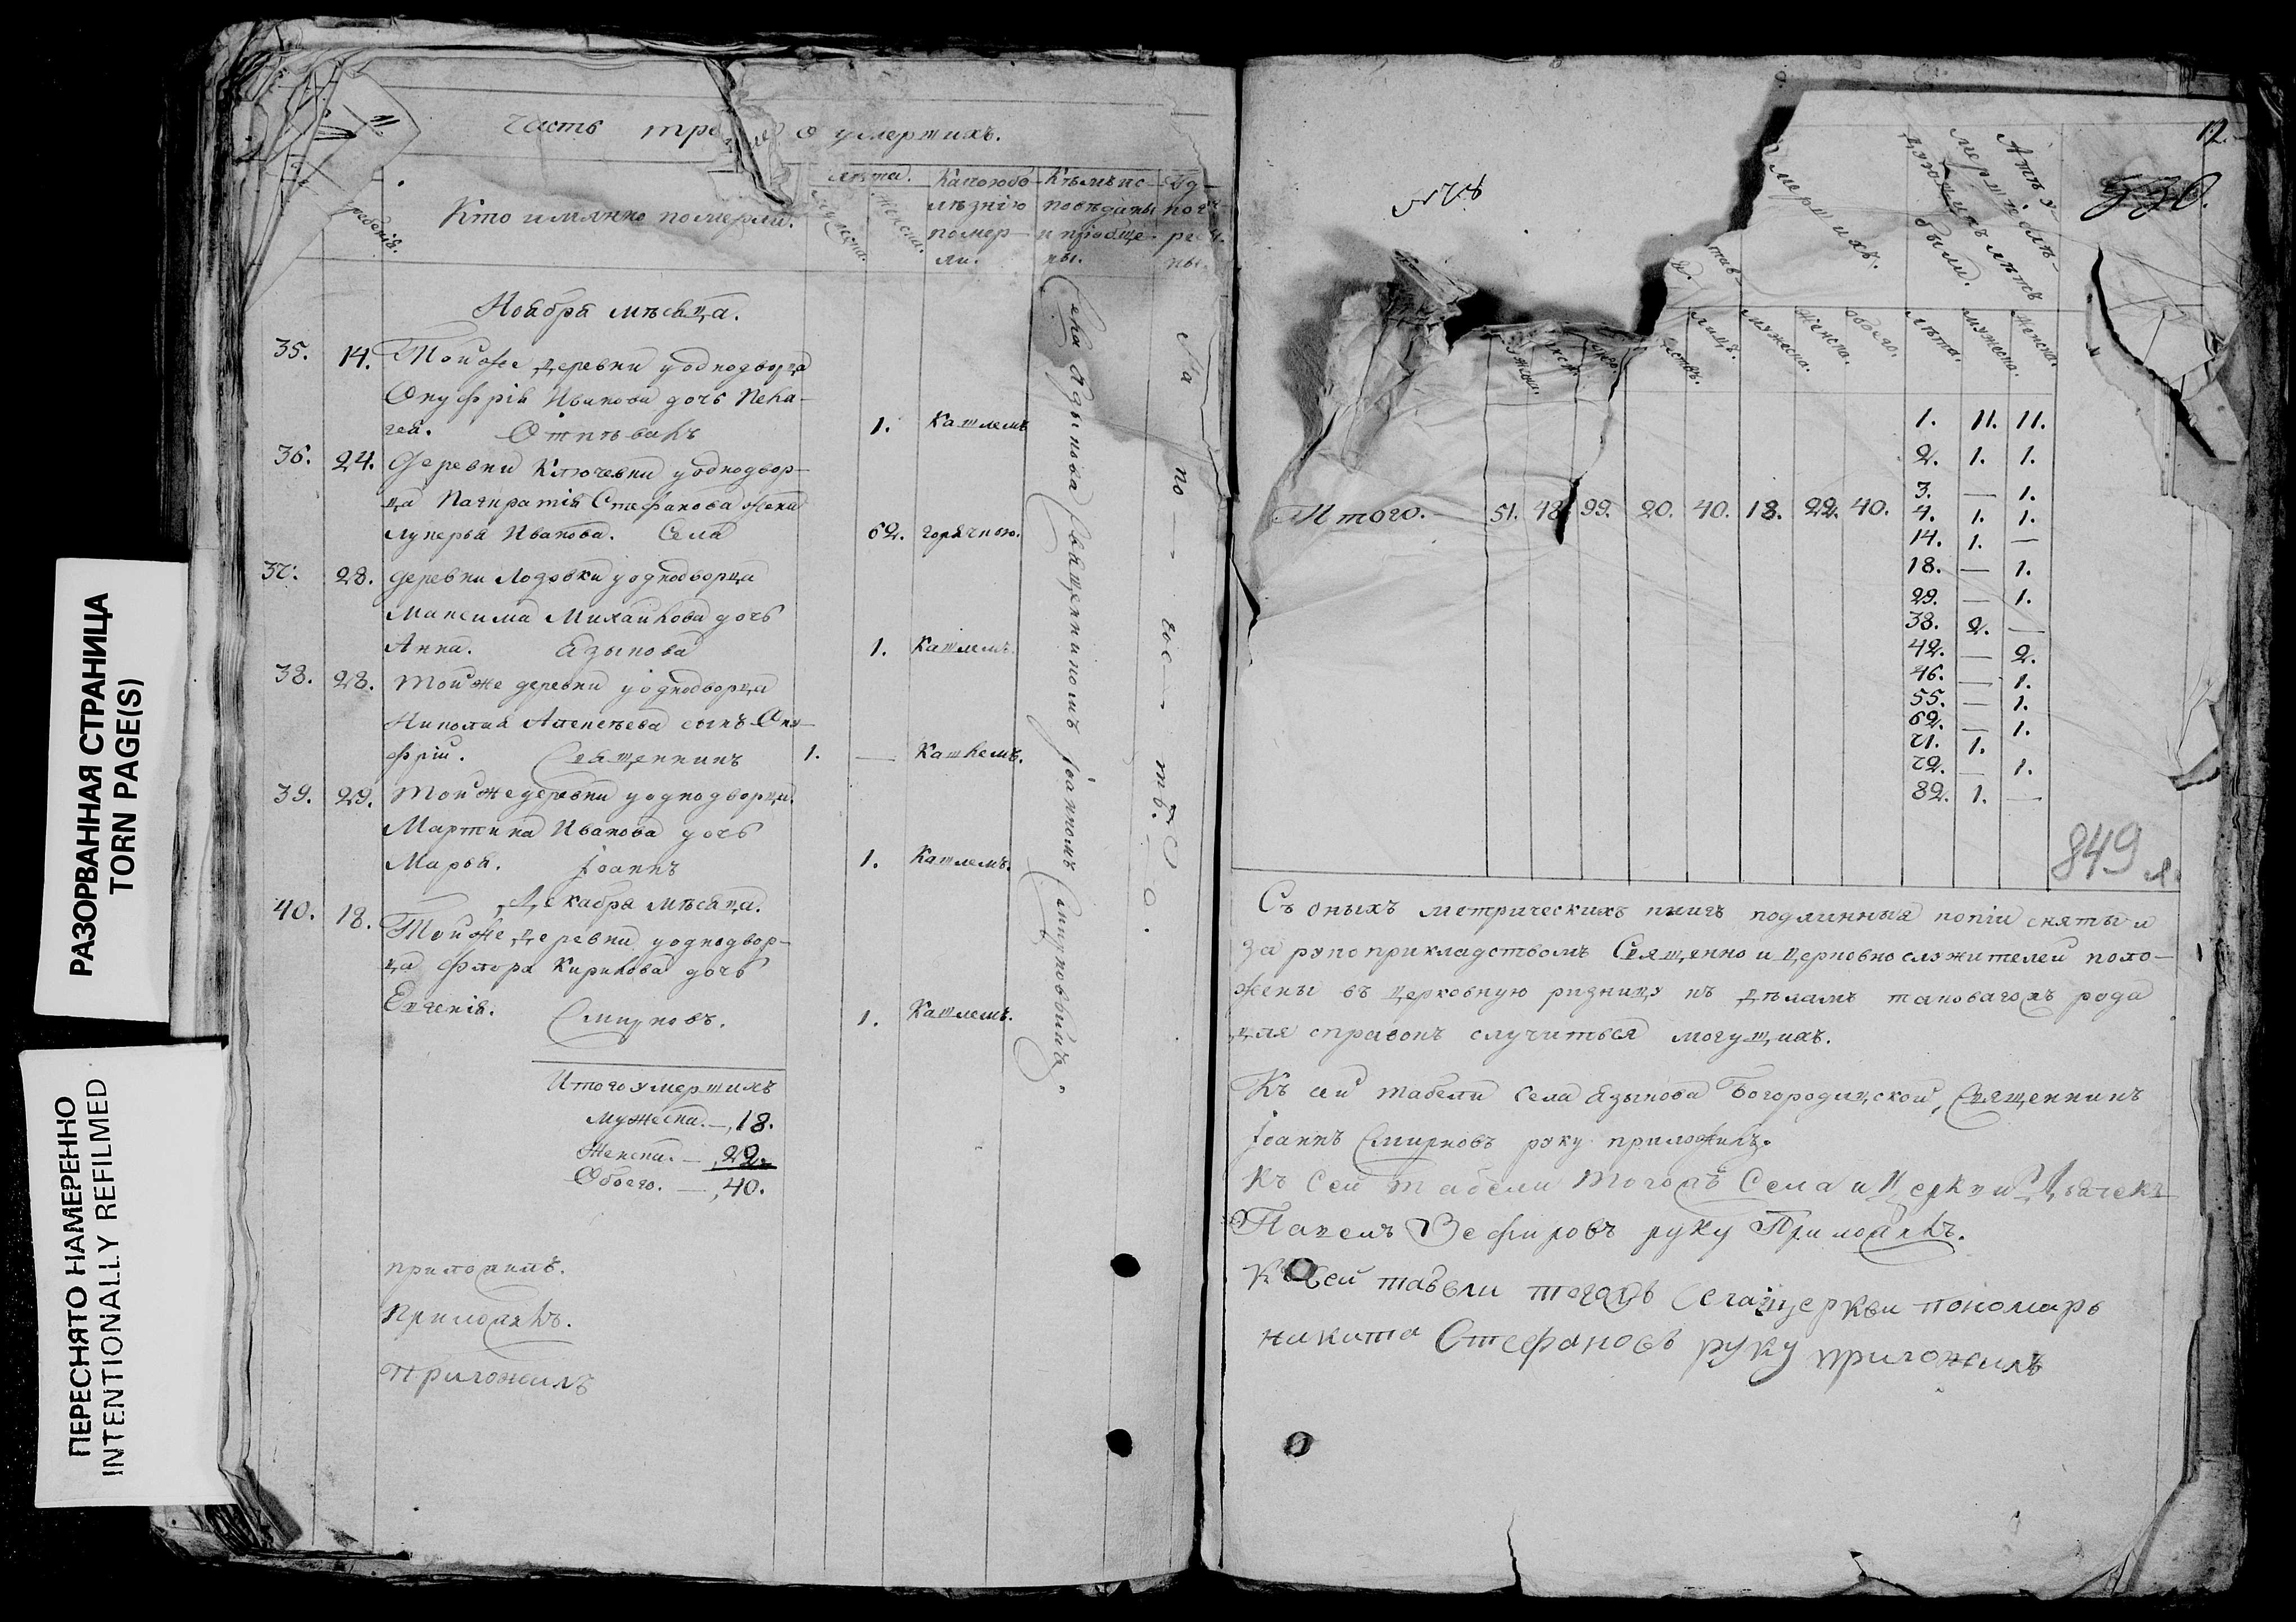 РАЗОРВАННАЯ СТРАНИЦА
TORN PAGE(S)
ПЕРЕСНЯТО НАМЕРЕННО
INTENTIONALLY REFILMED
11
Часть тре о умершихъ.
Кто имянно померли.
Лѣта.
мужеска.
женска.
Какою бо-
лѣзнію
помер-
ли.
Кѣмъ ис-
повѣданы
и приобще-
ны.
погре
ны.
Ноября мѣсяца.
35. 14. Той же деревни у однодворца
Онуфрія Иванова дочь Пела-
гея. Отпѣвалъ 1. Кашлемъ
36. 24. Деревни Ключевки у однодвор-
ца Панкратія Стефанова жена
Лукерья Иванова. Села 62. горячкою.
37. 28. Деревни Лозовки у однодворца
Максима Михайлова дочь
Анна. Языкова 1. Кашлемъ.
38. 28. Той же деревни у однодворца
Николая Алексѣева сынъ Ону-
фрій. Священникъ 1. — Кашлемъ.
39. 29. Той же деревни у однодворца
Мартина Иванова дочь
Марья. Іоаннъ 1. Кашлемъ.
Декабря мѣсяца.
40. 18. Той же деревни у однодвор-
ца Флора Кирилова дочь
Евгенія. Смирновъ. 1. Кашлемъ.
Села Языкова Священникомъ Іоанномъ Смирновымъ
На по — гос — тѣ.
Итого умершихъ
Мужеска. —, 18.
Женска. —, 22.
Обоего. —, 40.
приложилъ.
Приложилъ.
Приложилъ
12.
умершихъ.
А тѣ у
мершіе
лѣтъ
были.
мужеска.
женска.
обоего.
лѣта.
мужеска.
женска.
Итого. 51. 48. 99. 20. 40. 18. 22. 40.
1. 11. 11.
2. 1. 1.
3. — 1.
4. 1. 1.
14. 1. —
18. — 1.
29. — 1.
38. 2. —
42. — 2.
46. — 1.
55. — 1.
62. — 1.
71. 1.
72. — 1.
82. 1. —
849 л.
Съ оныхъ метрическихъ книгъ подлинныя копіи сняты и
за рукоприкладствомъ Священно и церковнослужителей поло-
жены въ церковную ризницу къ дѣламъ таковагожъ рода
для справокъ случиться могущихъ.
Къ сей табели села Языкова Богородицской, Священникъ
Іоаннъ Смирновъ руку приложилъ.
Къ Сей табели тогожъ Села и Церкви Дьячекъ
Павелъ Зефировъ руку Приложилъ.
К сей табели тогожъ села и церкви пономарь
никита Стефановъ руку приложилъ